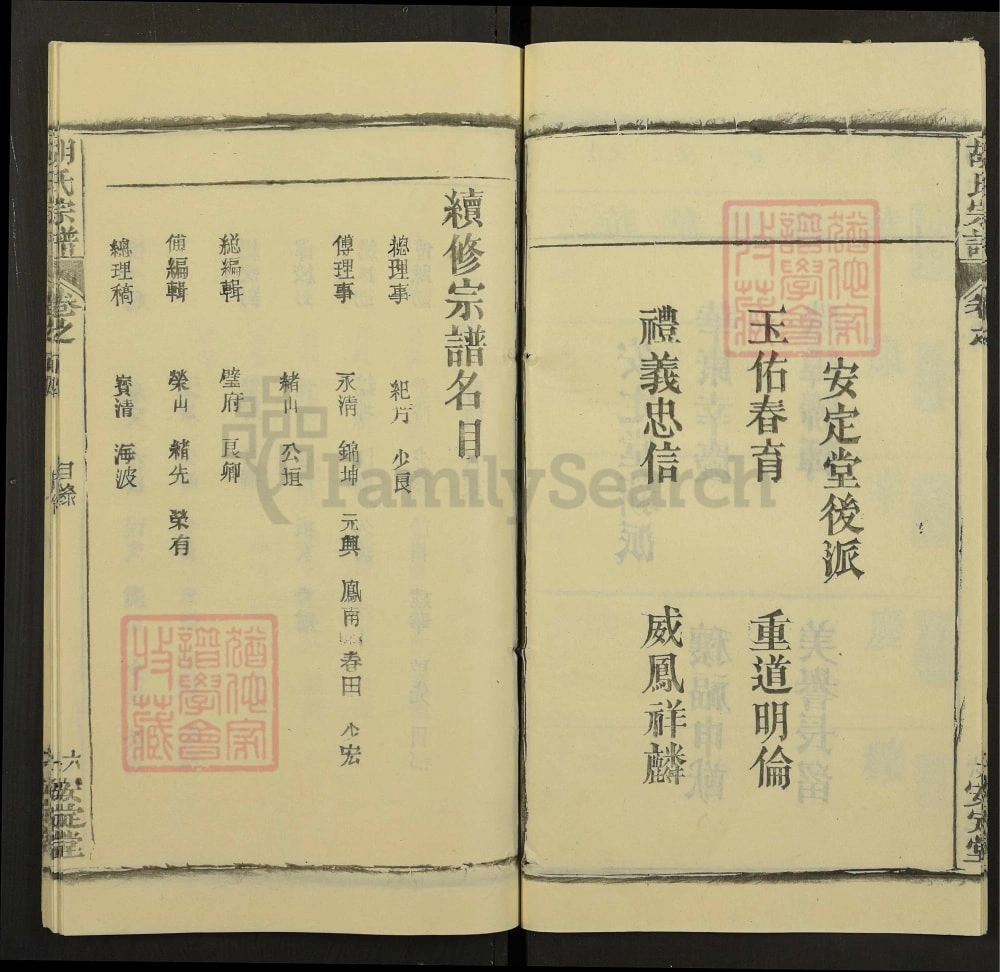 安定堂後派
玉佑春育 重道明倫
禮義忠信 威鳳祥麟
續修宗譜名目
總理事 紀芳 少良
傅理事 永淸 錦坤 元興 鳳南 春田 少宏
緒山 公垣
總編輯 璧府 良卿
傅編輯 榮山 緒先 榮有
總理稿 寳清 海波
胡氏宗譜 卷之 目錄 安定堂
胡氏宗譜 卷之
安定堂
FamilySearch